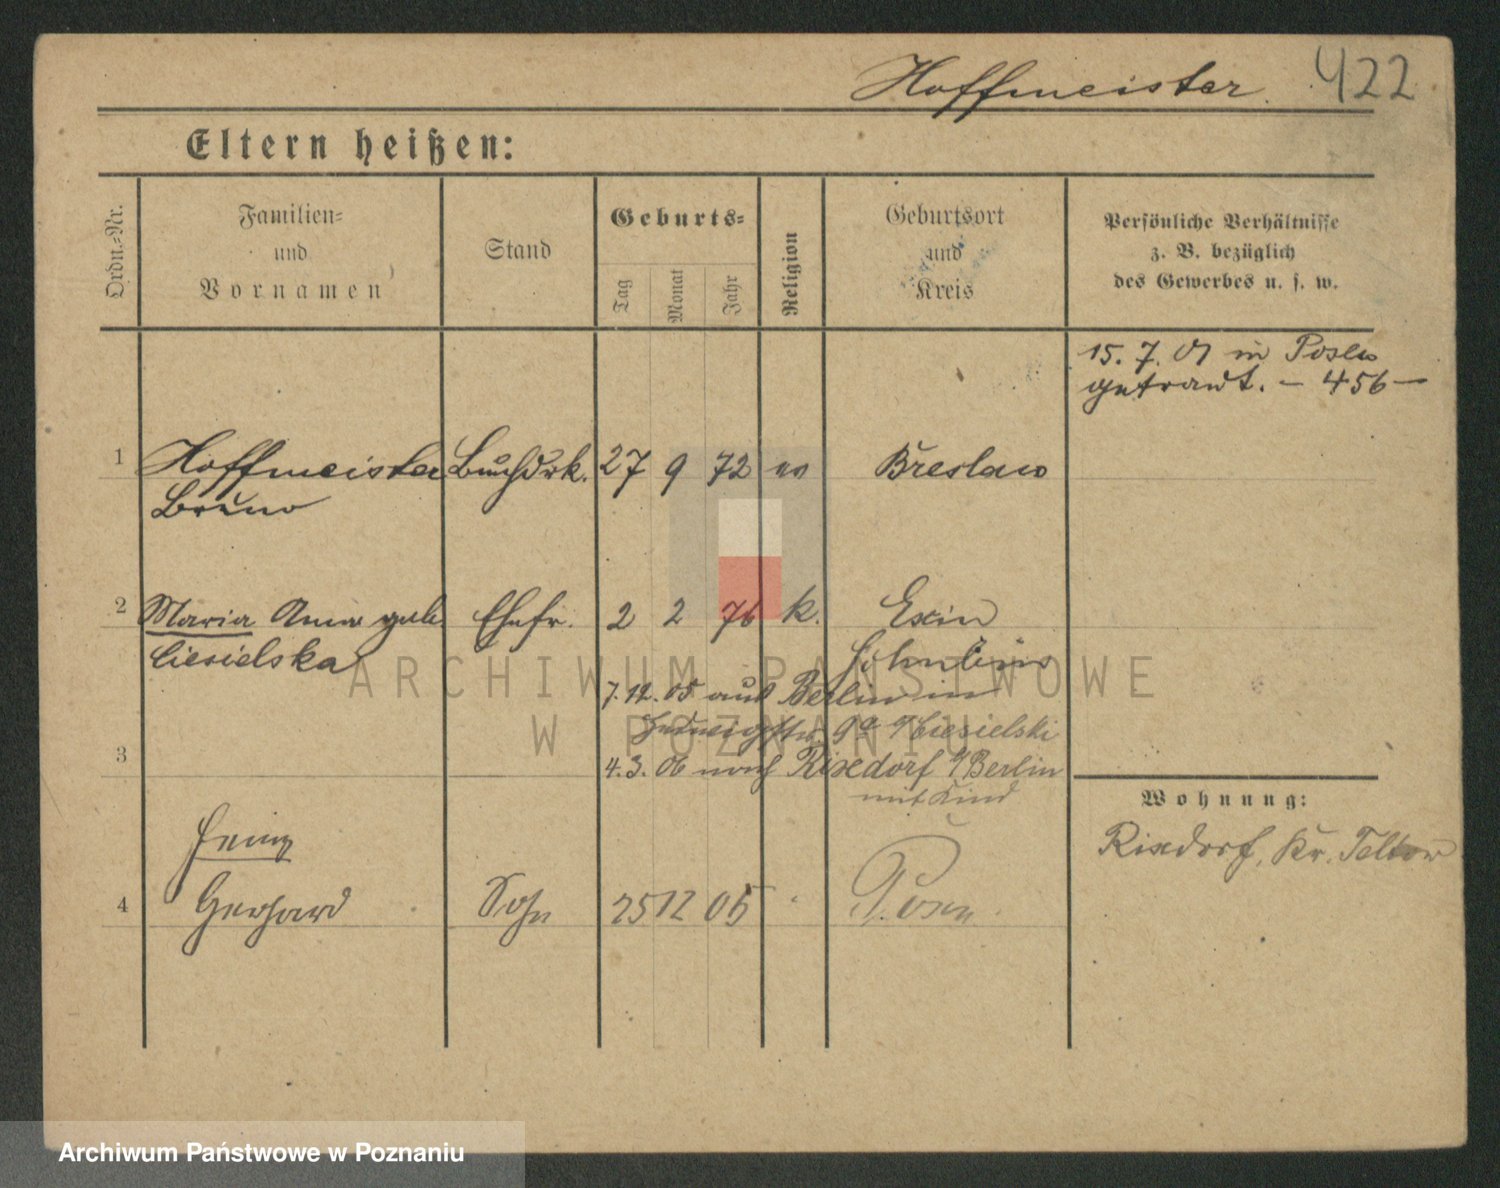 Hoffmeister. 422
Eltern heißen:
Ordn.-Nr.
Familien-
und
Vornamen
Stand
Geburts-
Tag
Monat
Jahr
Religion
Geburtsort
und
Kreis
Persönliche Verhältnisse
z. B. bezüglich
des Gewerbes u. s. w.
15. 7. 01 in Posen
getraut. – 456 –
1 Hoffmeister Buchdrk. 27 9 72 ev Breslau
Bruno
2 Maria Anna geb. Ehefr. 2 2 76 k. Exin
Ciesielska
7. 12. 05 aus Berlin in
9a b/Ciesielski
3
4. 3. 06 nach Rixdorf b/Berlin
mit Kind
Wohnung:
Rixdorf, Kr. Teltow
Heinz
4 Gerhard Sohn 25 12 05 Posen
ARCHIWUM PAŃSTWOWE
W POZNANIU
Archiwum Państwowe w Poznaniu